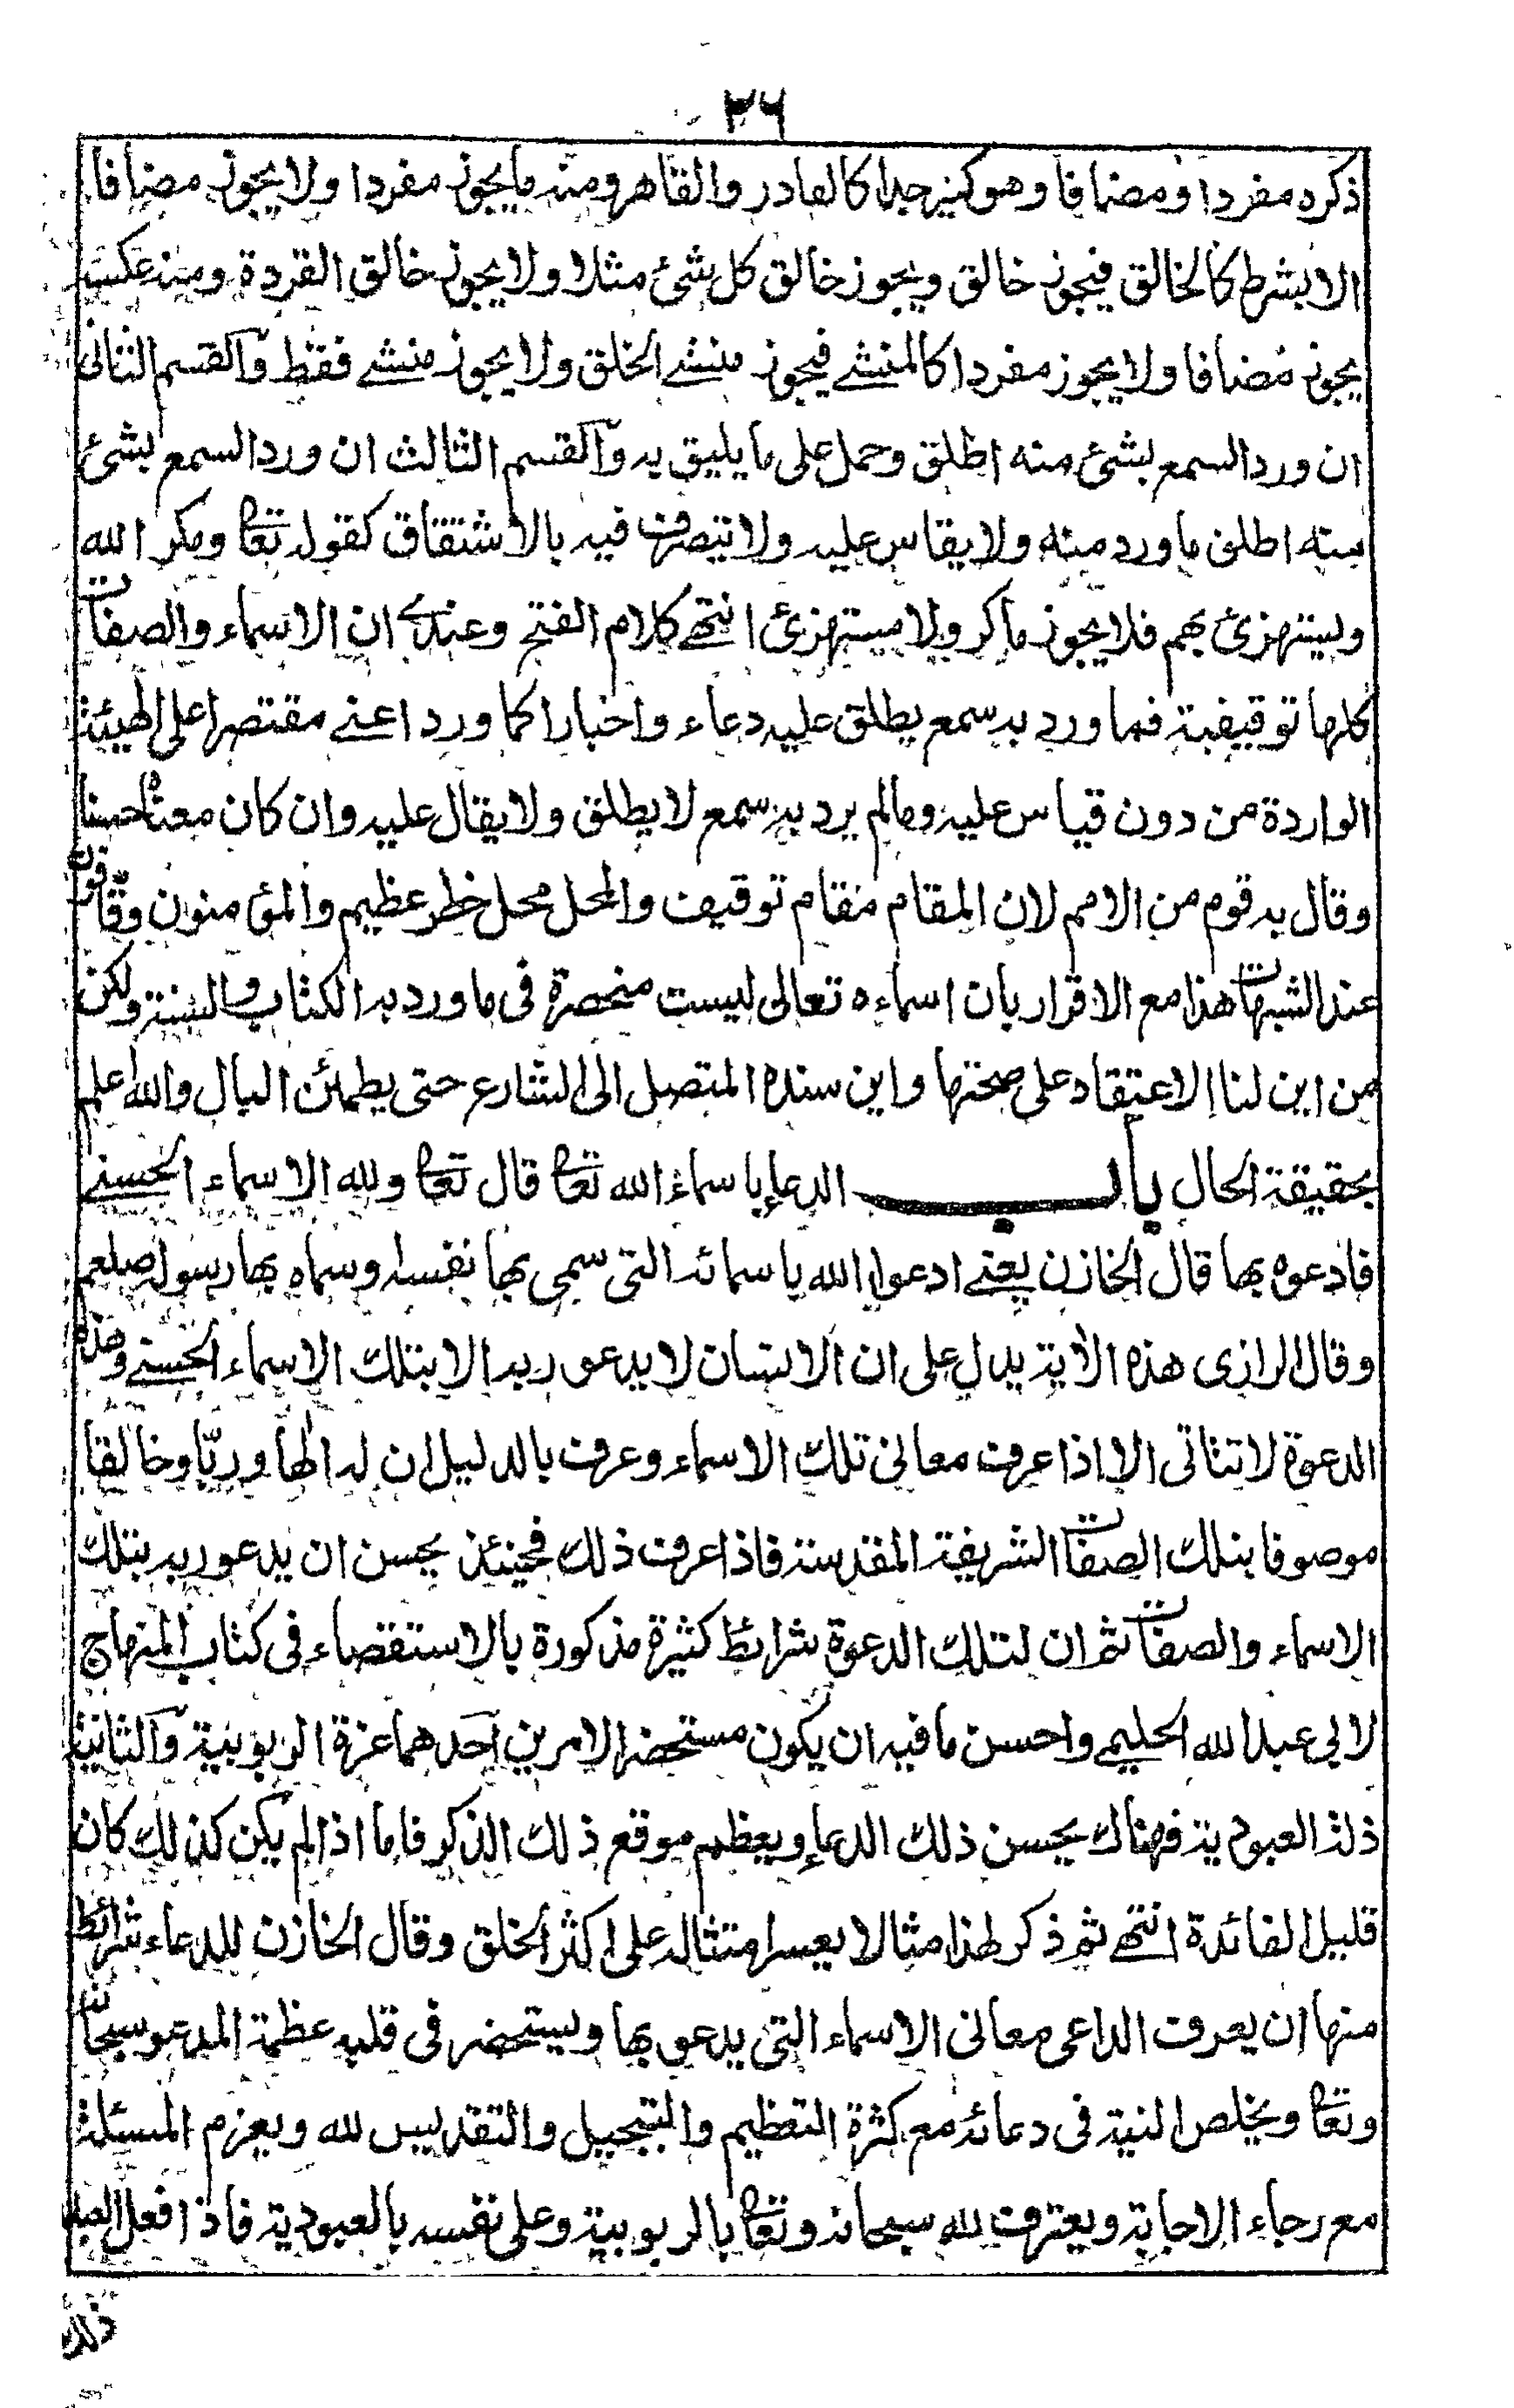 ٣٦
ذكره مفردا ومضافا وهو كثير جدا كالقادر والقاهر ومنه ما يجوز مفردا ولا يجوز مضافا
الا بشرط كالخالق فيجوز خالق ويجوز خالق كل شئ مثلا ولا يجوز خالق القردة ومنه عكسه
يجوز مضافا ولا يجوز مفردا كالمنشئ فيجوز منشئ الخلق ولا يجوز منشئ فقط والقسم الثانى
ان ورد السمع بشئ منه اطلق وحمل على ما يليق به والقسم الثالث ان ورد السمع بشئ
منه اطلق ما ورد منه ولا يقاس عليه ولا يتصرف فيه بالاشتقاق كقوله تعا ومكر الله
ويستهزئ بهم فلا يجوز ماكر ولا مستهزئ انتهى كلام الفتح وعندى ان الاسماء والصفات
كلها توقيفية فما ورد به سمع يطلق عليه دعاء واخبارا كما ورد اعنى مقتصرا على الهيئة
الواردة من دون قياس عليه وما لم يرد به سمع لا يطلق ولا يقال عليه وان كان معناه حسنا
وقال به قوم من الامم لان المقام مقام توقيف والمحل محل خطر عظيم والمؤمنون وقّافون
عند الشبهات هذا مع الاقرار بان اسماءه تعالى ليست منحصرة فى ما ورد به الكتاب والسنة ولكن
من اين لنا الاعتقاد على صحتها واين سنده المتصل الى الشارع حتى يطمئن البال والله اعلم
بحقيقة الحال باب الدعاء باسماء الله تعا قال تعا ولله الاسماء الحسنى
فادعوه بها قال الخازن يعنى ادعوا الله باسمائه التى سمى بها نفسه وسماه بها رسوله صلعم
وقال الرازى هذه الآية يدل على ان الانسان لا يدعو ربه الا بتلك الاسماء الحسنى وهذه
الدعوة لا تتاتى الا اذا عرف معانى تلك الاسماء وعرف بالدليل ان له الها وربّا وخالقا
موصوفا بتلك الصفات الشريفة المقدسة فاذا عرف ذلك فحينئذ يحسن ان يدعو ربه بتلك
الاسماء والصفات ثم ان لتلك الدعوة شرائط كثيرة مذكورة بالاستقصاء فى كتاب المنهاج
لابى عبد الله الحليمى واحسن ما فيه ان يكون مستحضرا لامرين احدهما عزة الربوبية والثانية
ذلة العبودية فهناك يحسن ذلك الدعاء ويعظم موقع ذلك الذكر فاما اذا لم يكن كذلك كان
قليل الفائدة انتهى ثم ذكر لهذا مثالا يعسر امتثاله على اكثر الخلق وقال الخازن للدعاء شرائط
منها ان يعرف الداعى معانى الاسماء التى يدعو بها ويستحضر فى قلبه عظمة المدعو سبحانه
وتعا ويخلص النية فى دعائه مع كثرة التعظيم والتبجيل والتقديس لله ويعزم المسئلة
مع رجاء الاجابة ويعترف لله سبحانه وتعا بالربوبية وعلى نفسه بالعبودية فاذا فعل العبد
ذلك